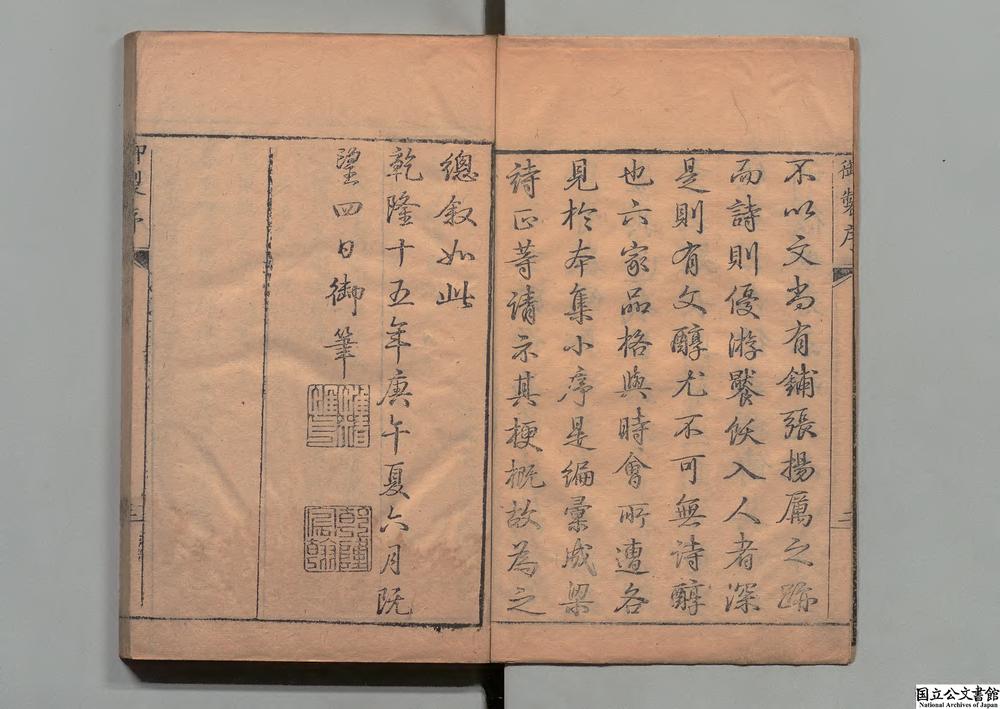 御製序
不以文尚有鋪張揚厲之跡
而詩則優游饜飫入人者深
是則有文醇尤不可無詩醇
也六家品格與時會所遭各
見於本集小序是編彙成梁
詩正等請示其梗概故為之
二
總敘如此
乾隆十五年庚午夏六月既
望四日御筆
御製序
三
国立公文書館
National Archives of Japan